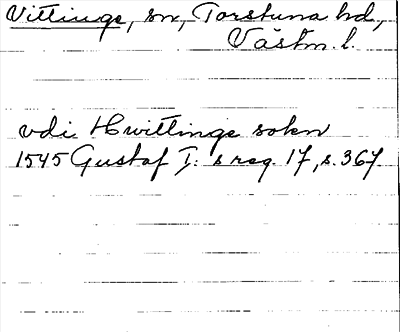 Vittinge, sn, Torstuna hd,
Västm. l.
vdi Hwittinge sokn
1545 Gustaf I:s reg. 17, s. 367